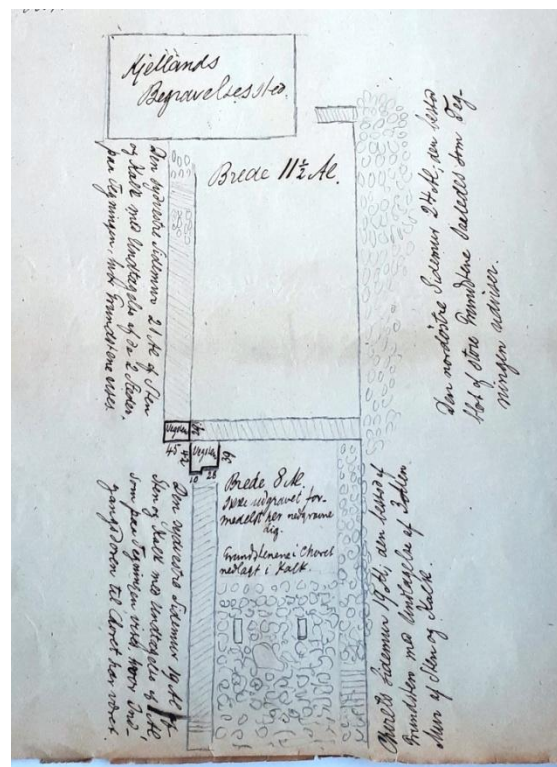 Kjellands
Begravelsessted.
Brede 11½ Al.
Den sydvestre Sidemur 21 Al af Sten
og Kalk med Undtagelse af de 2 Steder
paa Tegningen, hvor Grundstene vises.
Den nordöstre Sidemur 24 Al, den bestod
blot af store Grundstene saaledes som Teg-
ningen udviser.
45
42
39
10
28
Brede 8 Al.
Ikke udgravet for-
medelst her
Grundstenene i Choret
nedlagt i Kalk.
Den sydvestre Sidemur 19 Al af
Sten og Kalk med Undtagelse af 1 Al
som paa Tegningen vises, hvor Ind-
gangsdøren til Choret har været.
Chorets Sidemur 19 Al, den bestod af
Grundsten med Undtagelse af
Mur af Sten og Kalk.